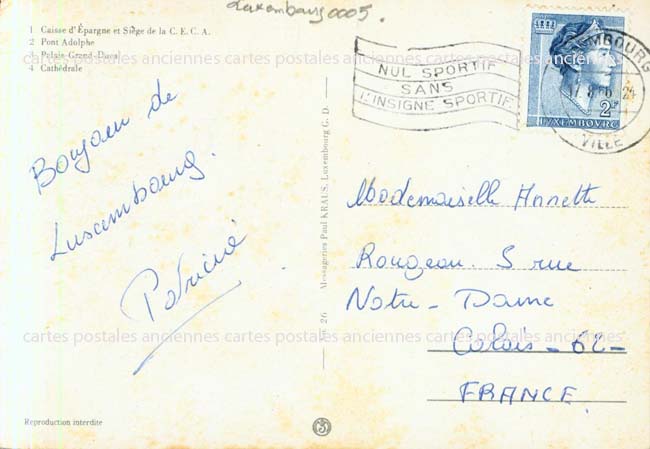 Luxembourg 0005.
1 Caisse d'Épargne et Siège de la C. E. C. A.
2 Pont Adolphe
3 Palais Grand-Ducal
4 Cathédrale
NUL SPORTIF
SANS
L'INSIGNE SPORTIF
LUXEMBOURG
VILLE
2F
LUXEMBOURG
Bonjour de
Luxembourg.
Patricia
Messageries Paul KRAUS, Luxembourg G. D.
26
Mademaiselle Annette
Rougeau. 5 rue
Notre - Dame
Calais - 62 -
FRANCE.
cartes postales anciennes cartes postales anciennes cartes postales anciennes
cartes postales anciennes cartes postales anciennes cartes postales anciennes
Reproduction interdite